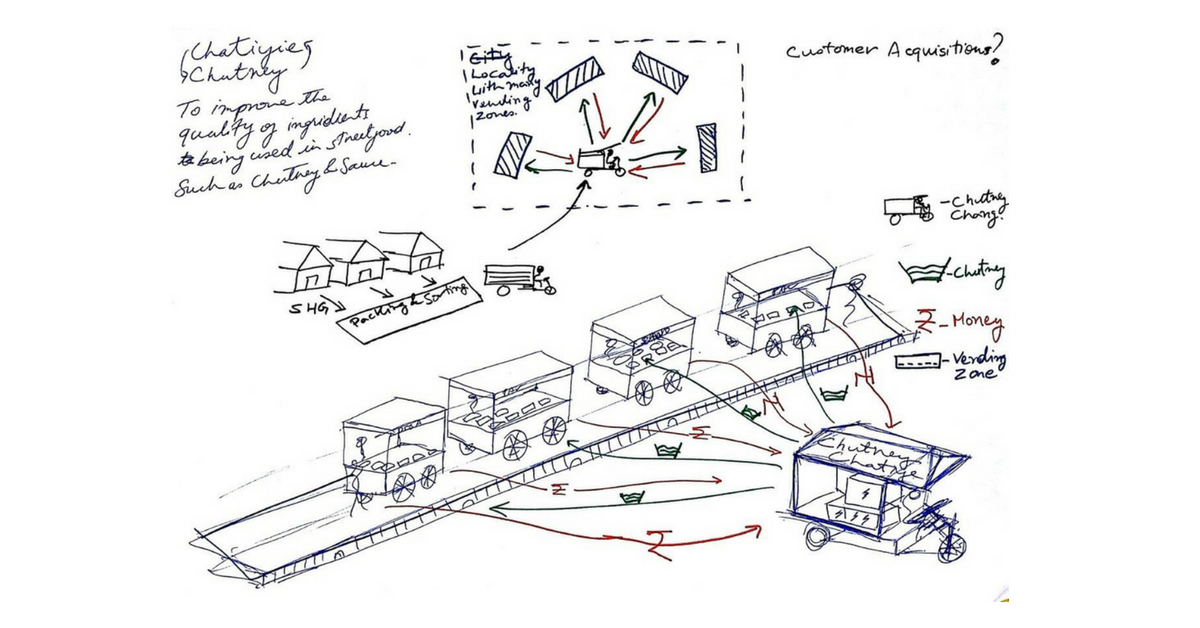 Chutney
To improve the
quality of ingridients
being used in streetfood.
Such as Chutney & Sauce-
City
Locality
with many
vending
zones.
Customer Acquisitions?
SHG
Packing & Sorting
-Chutney
-Chutney
₹ - Money
-Vending
Zone
₹
₹
₹
Chutney